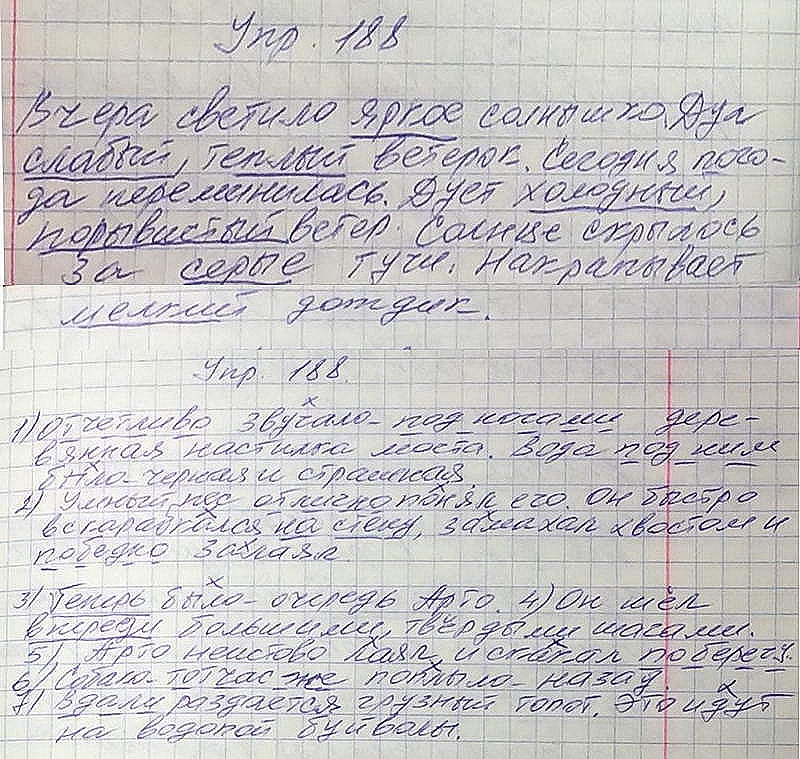 Упр. 188
Вчера светило яркое солнышко. Дул
слабый, теплый ветерок. Сегодня пого-
да переминилась. Дует холодный,
порывистый ветер. Солнце скрылось
за серые тучи. Накрапывает
мелкий дождик.
Упр. 188.
1) Отчетливо звучало под ногами дере-
вянная настилка моста. Вода под ним
была черная и страшная.
2) Умный пес отлично понял его. Он быстро
вскарабкался на стену, замахал хвостом и
победно залаял.
3) Теперь было очередь Арто. 4) Он шёл
впереди большими, твёрдыми шагами.
5) Арто неистово лаял и скакал по берегу.
6) Собака тотчас же поплыло назад.
7) Вдали раздается грузный топот. Это идут
на водопой буйволы.